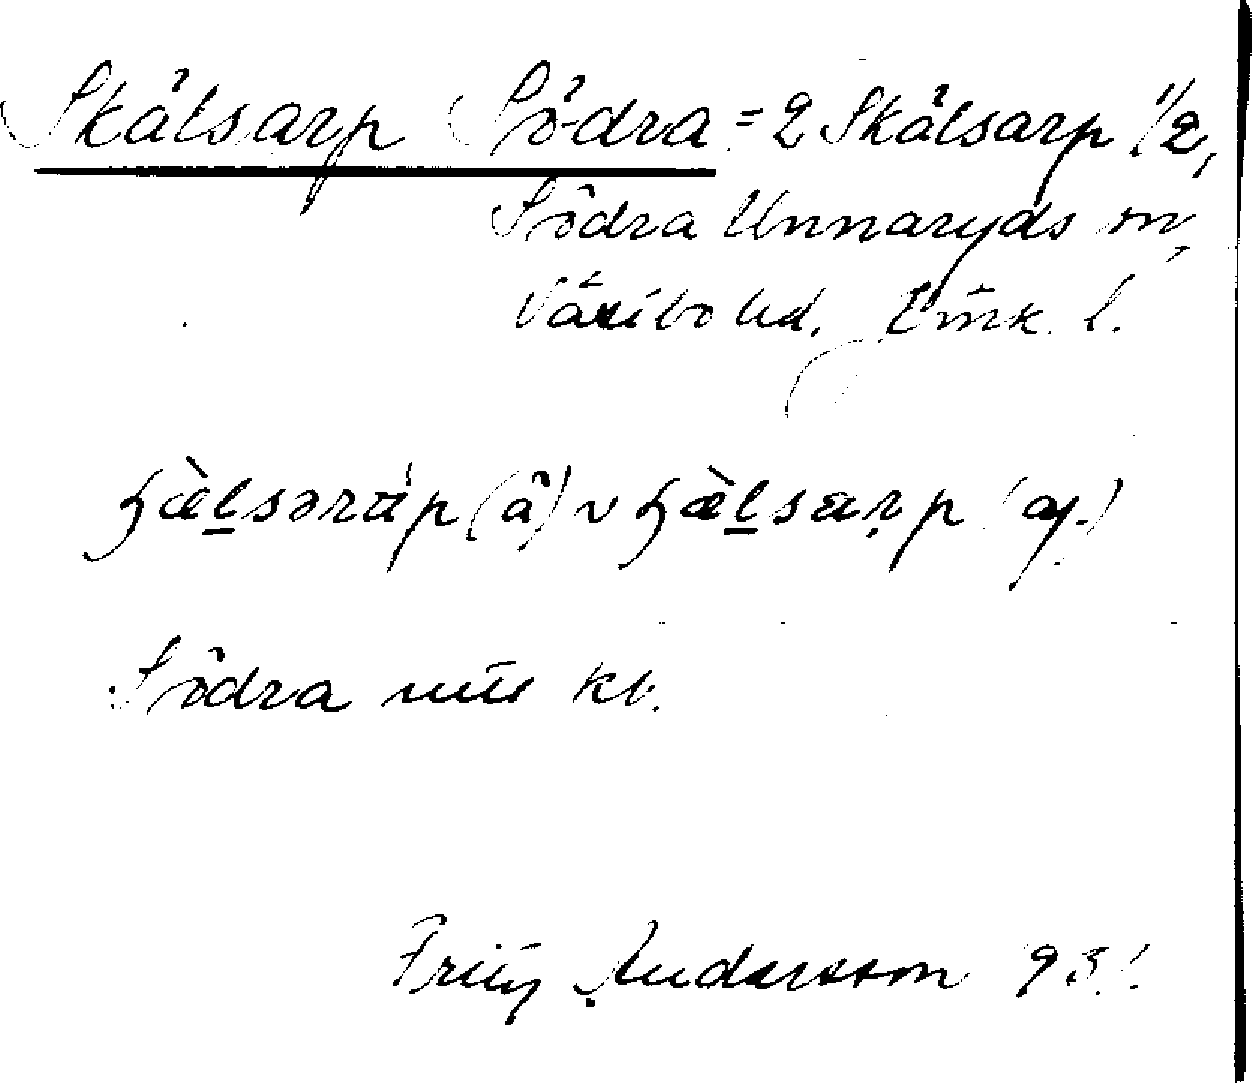 Skålsarp Södra = 2 Skålsarp 1/2,
Södra Unnaryds sn,
Västbo hd, Jönk. l.
ɧæ̀l̠səráp (â) ~ ɧæ̀l̠sarp (
Södra kb.
Andersson 93!